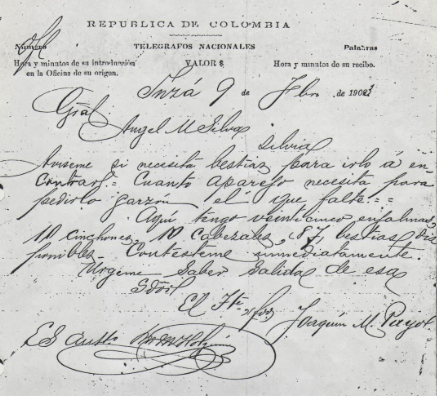 REPUBLICA DE COLOMBIA
Número TELEGRAFOS NACIONALES Palabras
Hora y minutos de su introducción VALOR $ Hora y minutos de su recibo.
en la Oficina de su origen.
Inzá 9 de Fbro de 190
Gral
Angel M Silva
Silvia
si necesita bestias para irlo á en-
contrar. Cuanto aparejo necesita para
pedirlo Garzón el que falte.
Aquí tengo veinticinco enjalmas,
10 cinchones, 10 cabezales, 87 bestias dis
ponibles. Contésteme inmediatamente.
Urgeme saber salida de esa
El Jte
Joaquin M.
Es